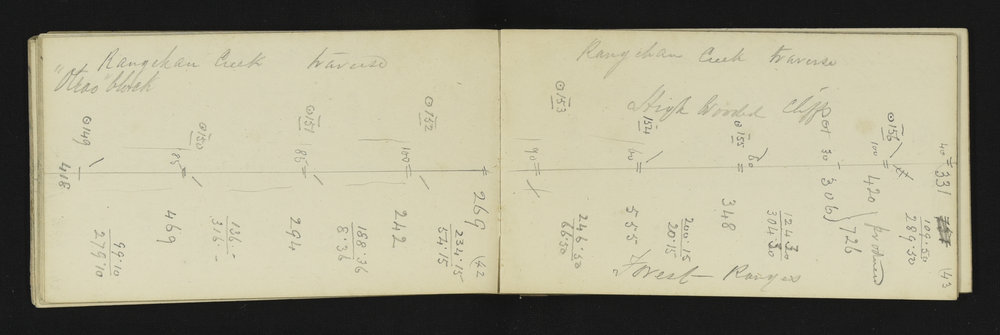 Rangehau Creek traverse
"Otao" block
⊙149
418
99·10
279·10
⊙150
85
469
136·-
316·-
⊙151
85
294
188·36
8·36
⊙152
100
242
269
234·15
54·15
(42
Rangehau Creek traverse
High Wooded Cliffs
⊙153
90
246·50
66·50
154
60
555
200·15
20·15
⊙155
60
348
124·30
304·30
30
306
726
⊙156
100
420
produced
40
331
109·50
289·50
Forest Ranges
(43